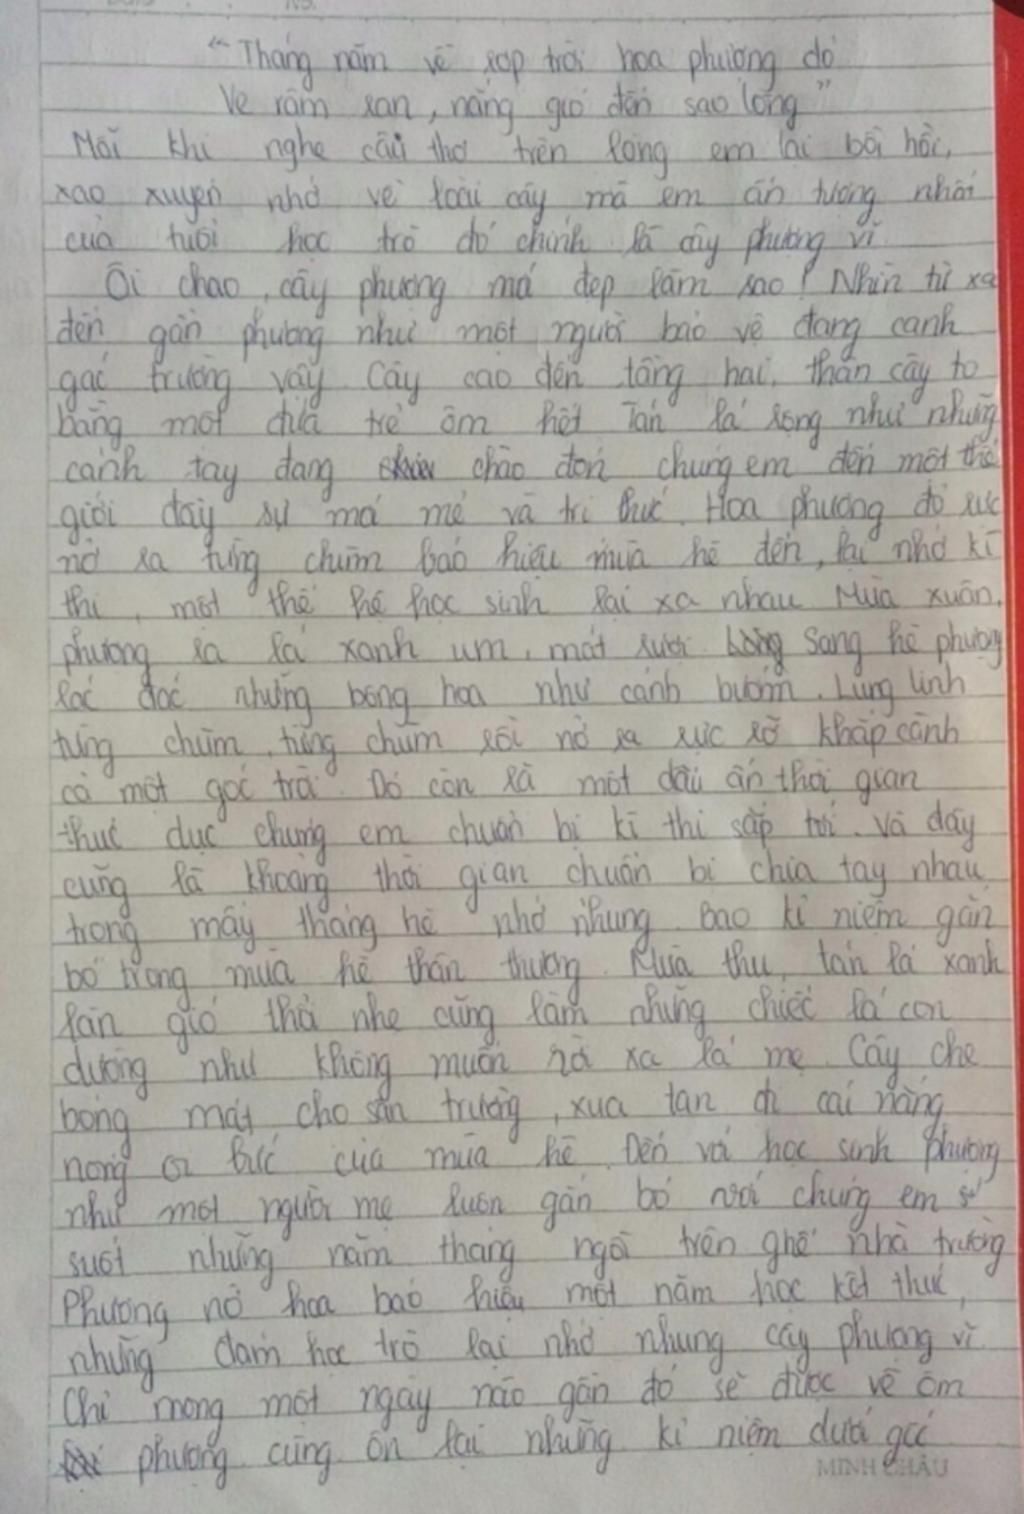 “Tháng năm về rợp trời hoa phượng đỏ
Ve râm ran, nắng gió đến sao lòng”
Mỗi khi nghe câu thơ trên lòng em lại bồi hồi,
xao xuyến nhớ về loài cây mà em ấn tượng nhất
của tuổi học trò đó chính là cây phượng vĩ.
Ôi chao, cây phượng mới đẹp làm sao! Nhìn từ xa
đến gần phượng như một người bảo vệ đang canh
gác trường vậy. Cây cao đến tầng hai, thân cây to
bằng một đứa trẻ ôm hết. Tán lá rộng như những
cánh tay đang chào đón chúng em đến một thế
giới đầy sự mới mẻ và tri thức. Hoa phượng đỏ rực
nở ra từng chùm báo hiệu mùa hè đến, lại nhớ kì
thi, một thế hệ học sinh lại xa nhau. Mùa xuân,
phượng ra lá xanh um, mát rượi. Sang hè phượng
lác đác những bông hoa như cánh bướm. Lung linh
từng chùm, từng chùm rồi nở ra rực rỡ khắp cành
cả một góc trời. Đó còn là một dấu ấn thời gian
thúc dục chúng em chuẩn bị kì thi sắp tới. Và đây
cũng là khoảng thời gian chuẩn bị chia tay nhau
trong mấy tháng hè nhớ nhung bao kỉ niệm gắn
bó trong mùa hè thân thương. Mùa thu, tán lá xanh
làn gió thổi nhẹ cũng làm những chiếc lá con
dường như không muốn rời xa lá mẹ. Cây che
bóng mát cho sân trường, xua tan đi cái nắng
nóng oi bức của mùa hè. Đến với học sinh phượng
như một người mẹ luôn gắn bó với chúng em
suốt những năm tháng ngồi trên ghế nhà trường
Phượng nở hoa báo hiệu một năm học kết thúc,
những đám học trò lại nhớ nhung cây phượng vĩ.
Chỉ mong một ngày nào gần đó sẽ được về ôm
phượng cùng ôn lại những kỉ niệm dưới gốc
MINH CHÂU